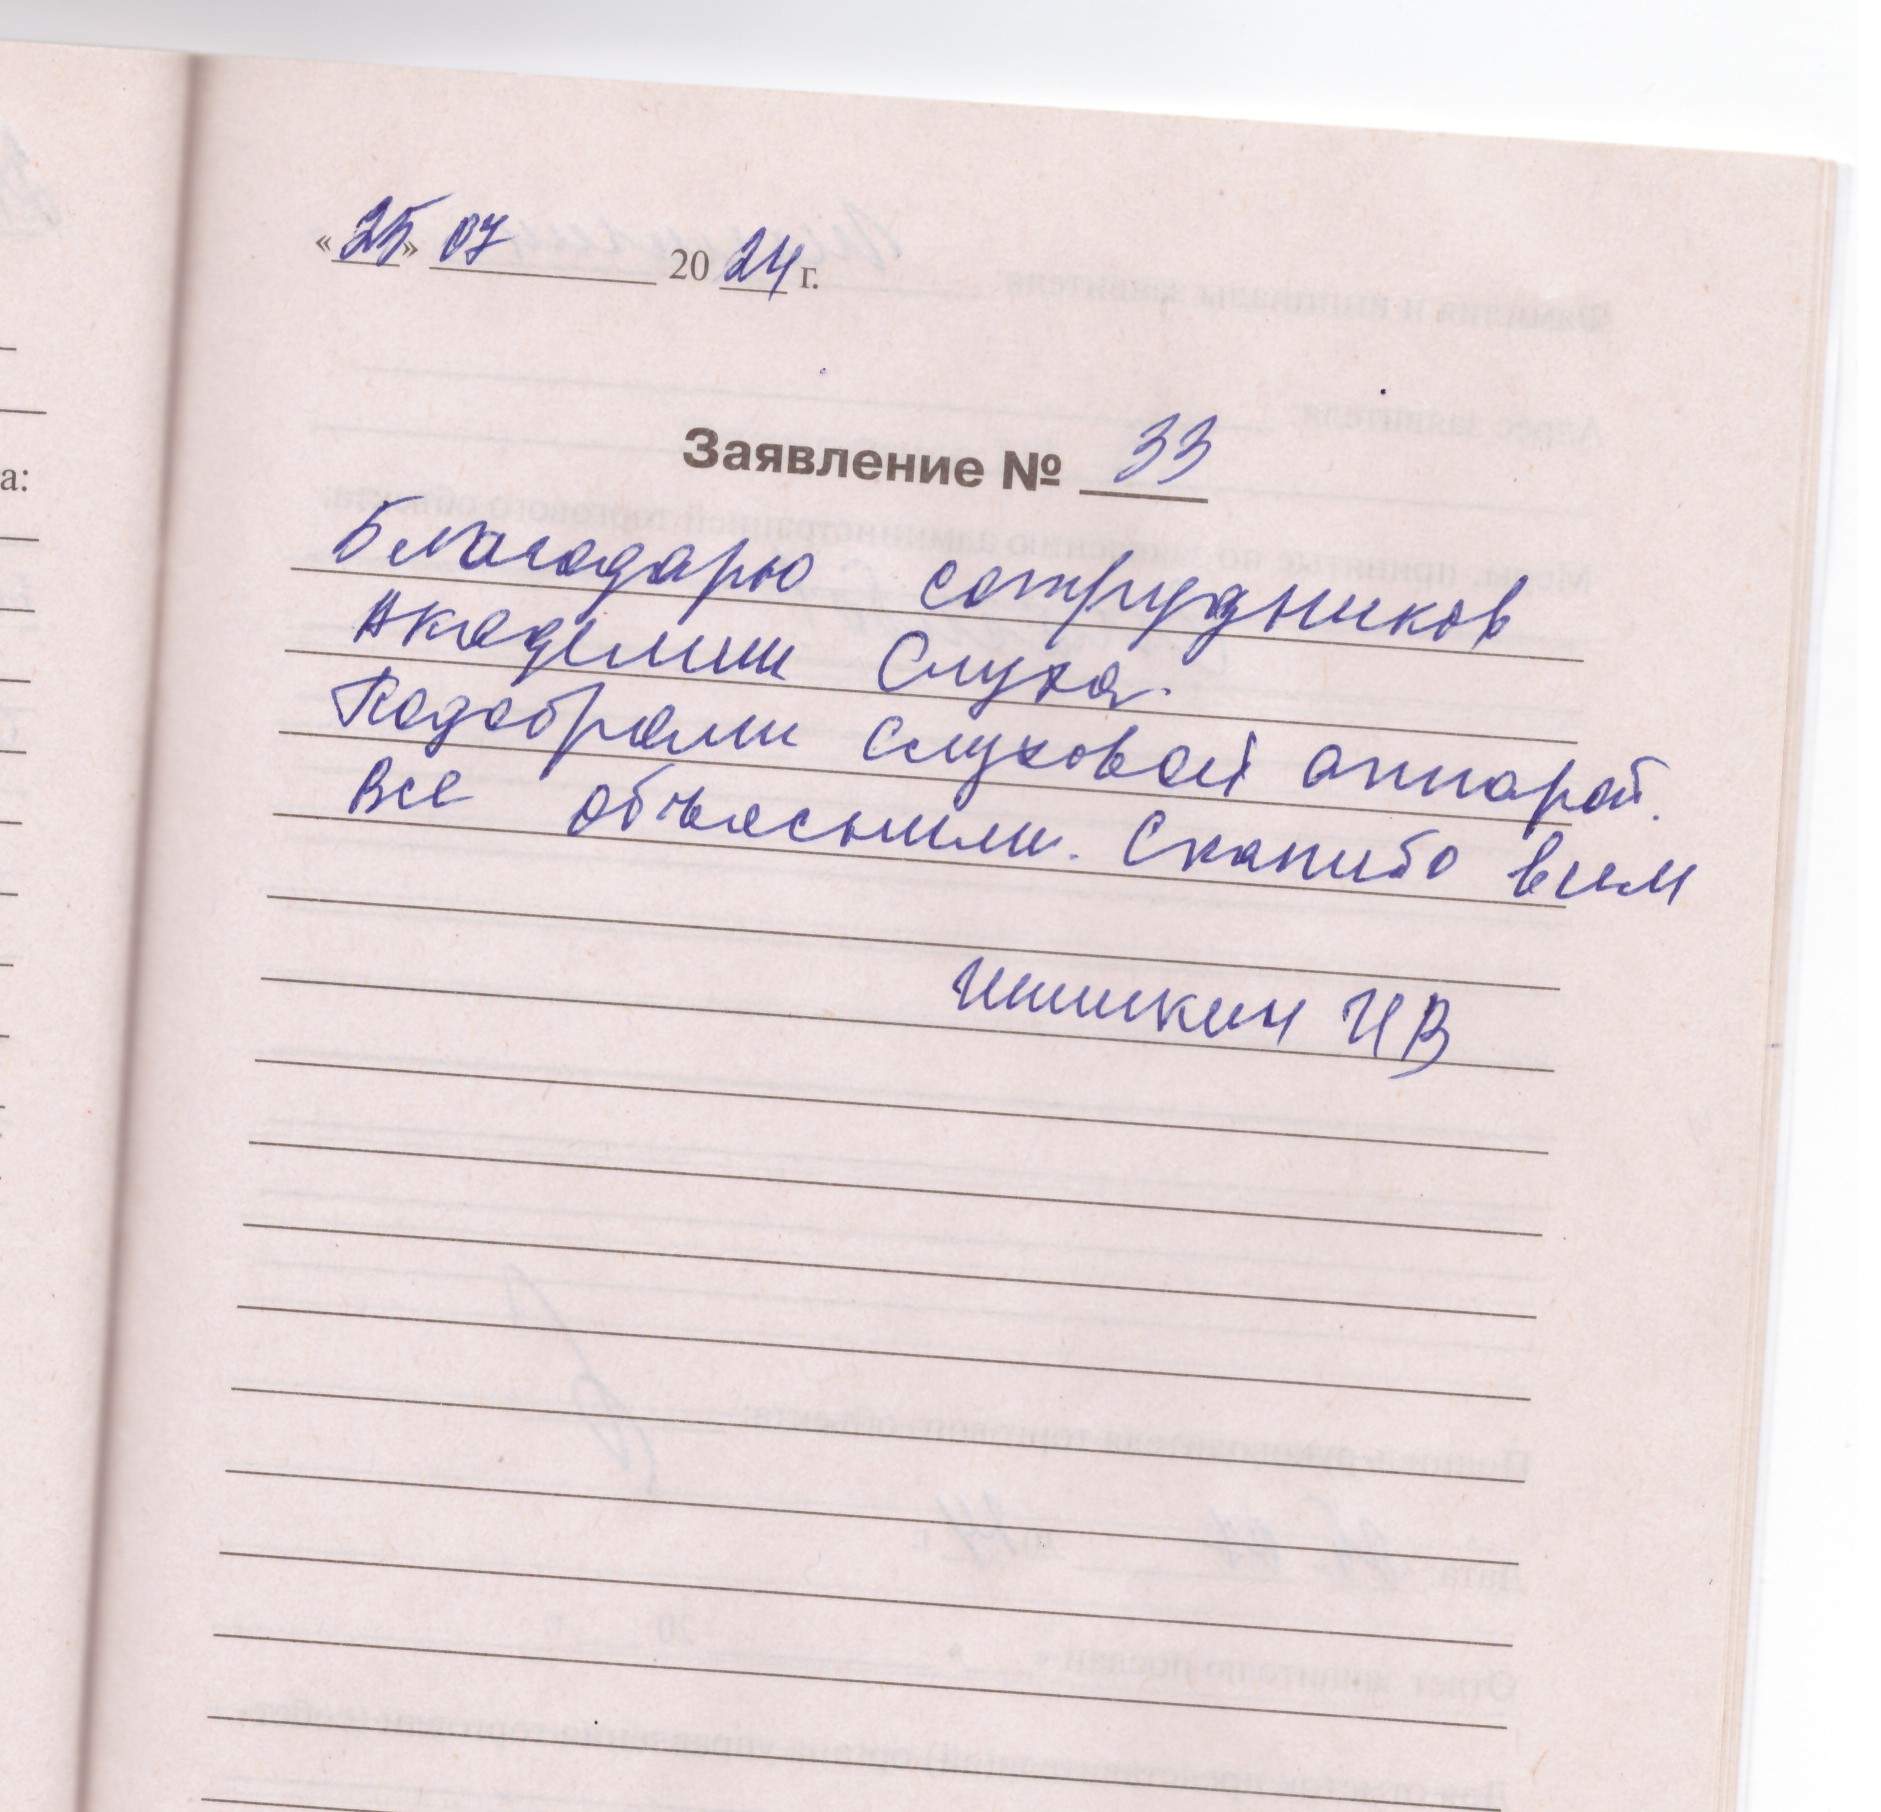 «25» 07 2024 г.
Заявление № 33
Благодарю сотрудников
Академии Слуха.
Подобрали слуховой аппарат.
Все объяснили. Спасибо вам
Шишкин И В
а: